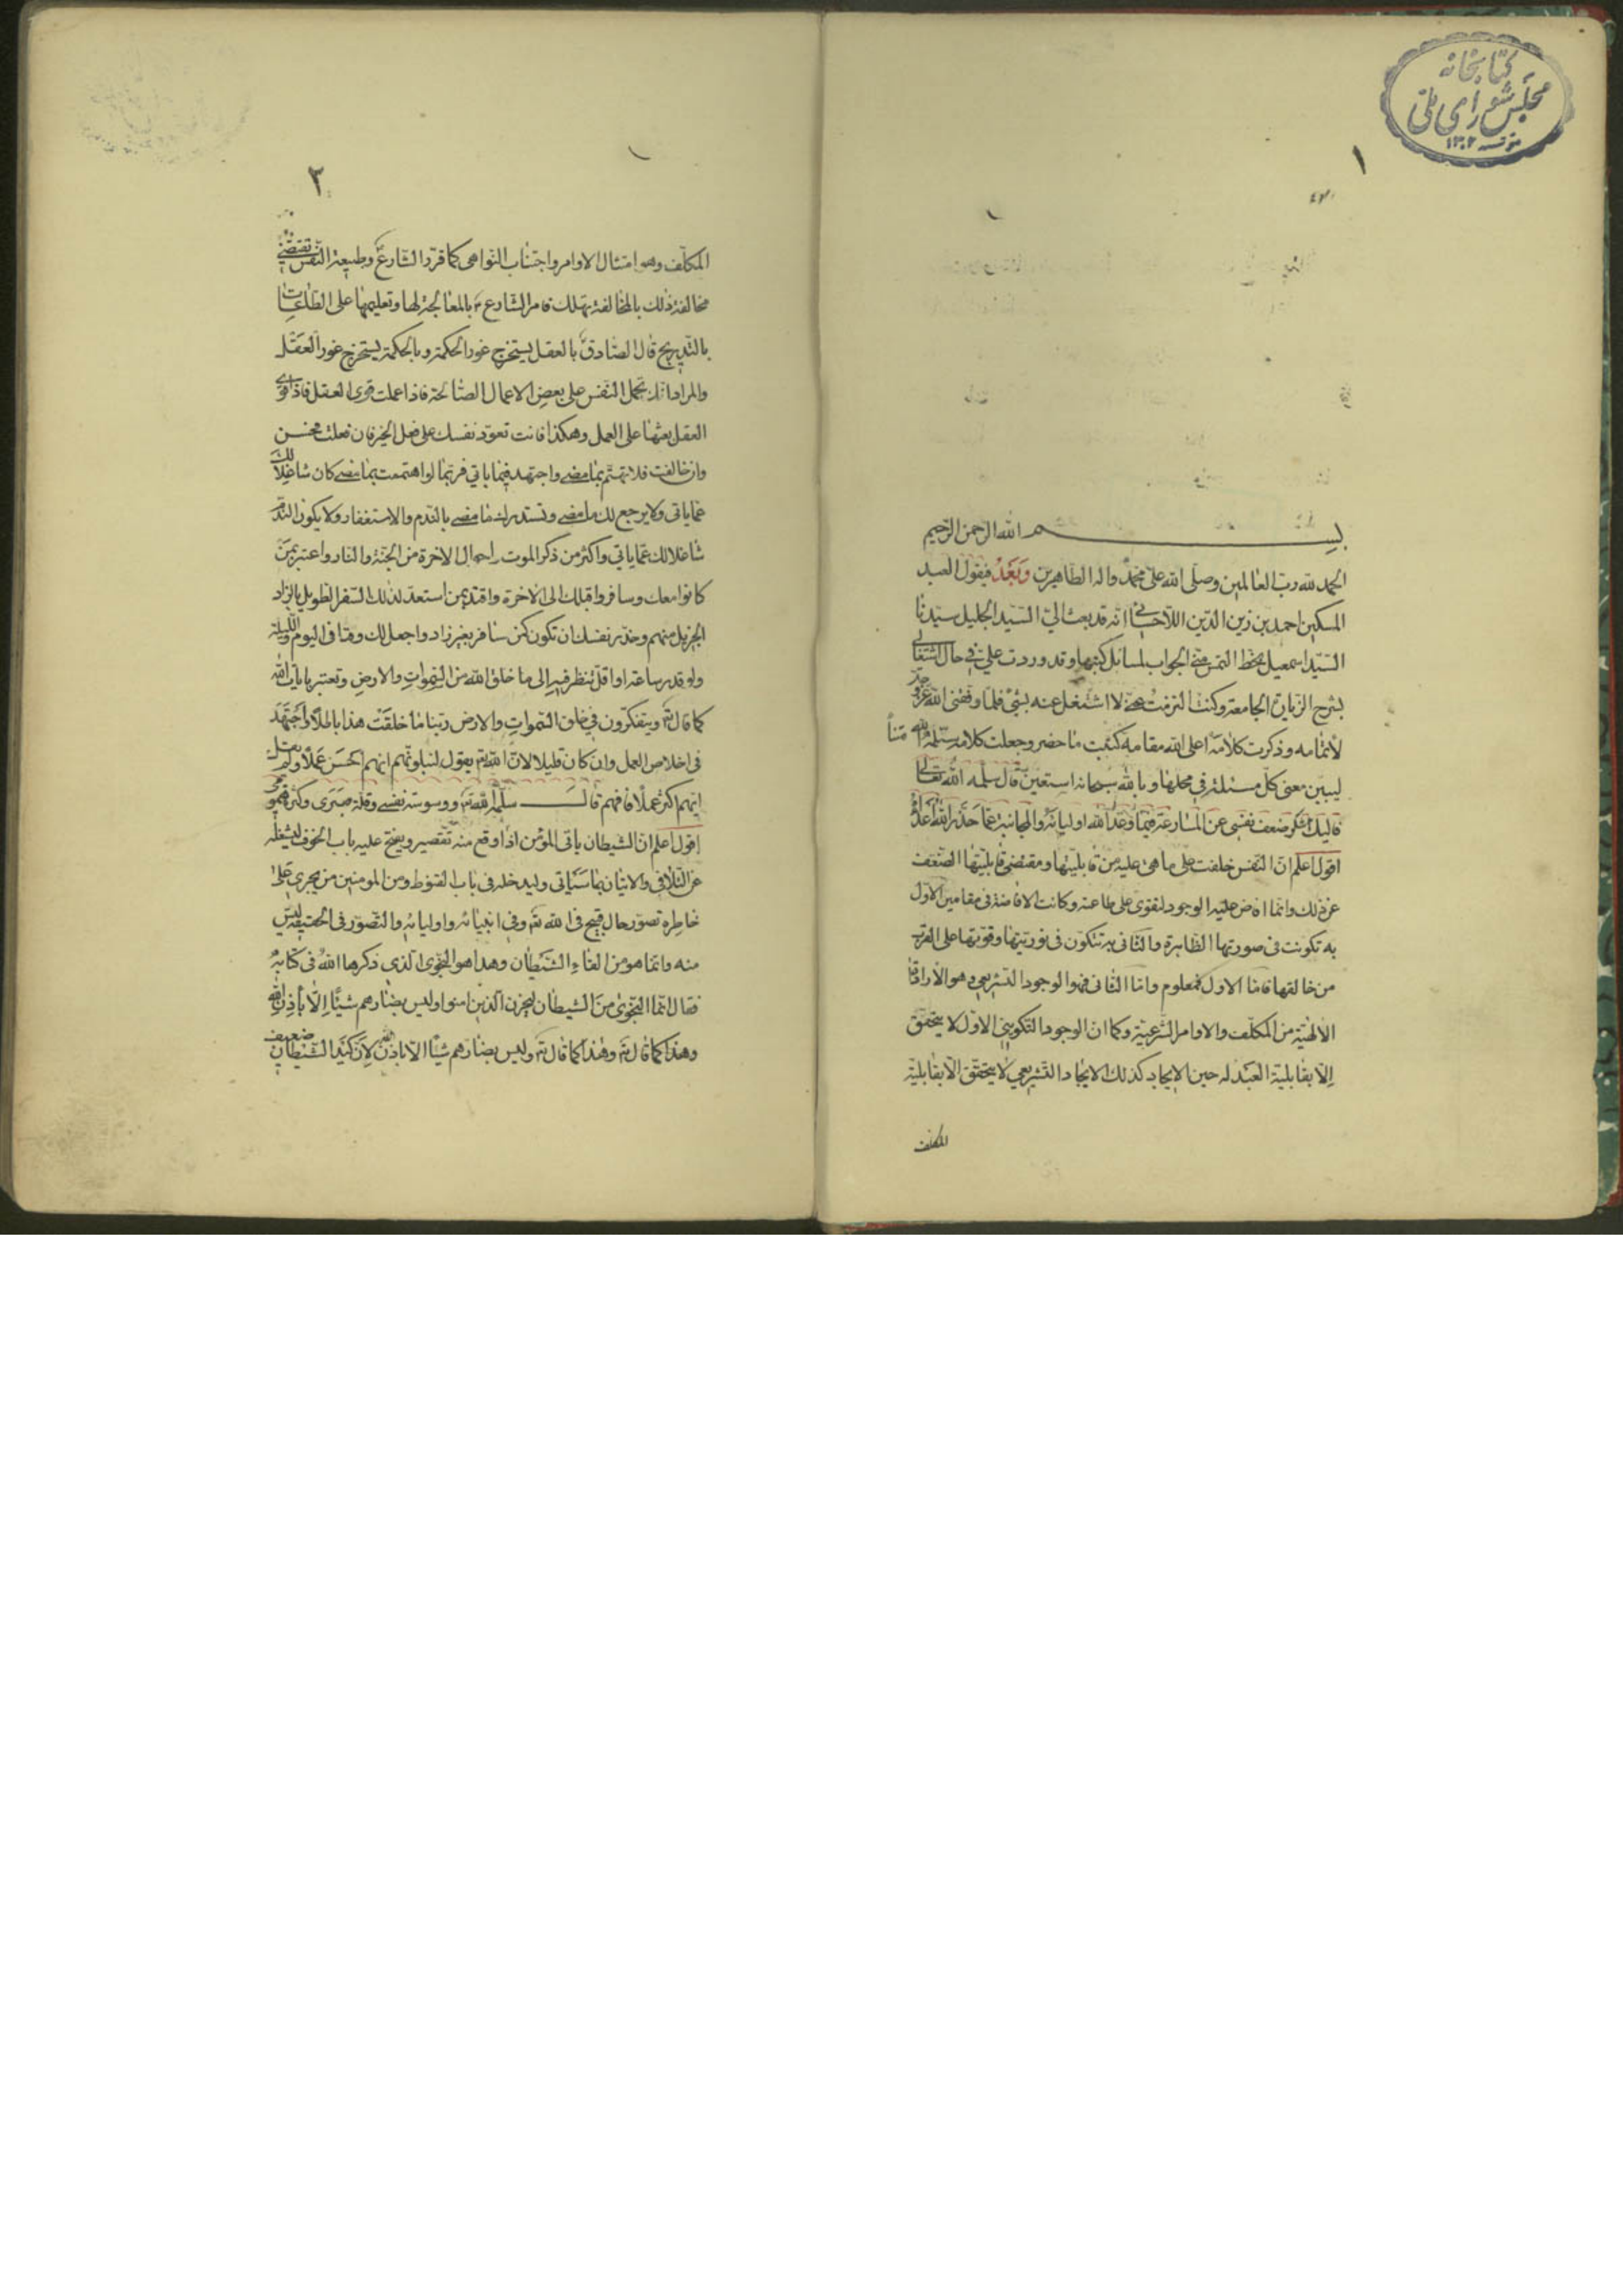 كتابخانه
مجلس شورای ملی
١٣٠٢
١
بسم الله الرحمن الرحيم
الحمد لله رب العالمين وصلى الله على محمد واله الطاهرين وبعد فيقول العبد
المسكين احمد بن زين الدين الاحسائي انه قد بعث الي السيد الجليل سيدنا
السيد اسمعيل بخط التمس مني الجواب لمسائل كتبها وقد وردت علي في حال اشتغالي
بشرح الزيارة الجامعة وكنت التزمت حتى لا اشتغل عنه بشئ فلما وفقني الله عز وجل
لاتمامه وذكرت كلامه اعلى الله مقامه كتبت ما حضر وجعلت كلامه سلمه الله متناً
ليبين معنى كل مسئلة في محلها وبالله سبحانه استعين قال سلمه الله تعالى
فاليك اشكو ضعف نفسي عن المسارعة فيما وعد الله اوليائه والمجانبة عما حذر الله اعدائه
اقول اعلم ان النفس خلقت على ما هي عليه من قابليتها ومقتضى قابليتها الضعف
عن ذلك وانما افاض عليه الوجود لتقوى على طاعته وكانت الافاضة في مقامين الاول
به تكونت في صورتها الظاهرة والثاني به تتكون في نوريتها وقوتها على القرب
من خالقها فاما الاول فمعلوم واما الثاني فهو الوجود التشريعي وهو الارادة
الالهية من المكلف والاوامر الشرعية وكما ان الوجود التكويني الاول لا يتحقق
الا بقابلية العبد له حين الايجاد كذلك الايجاد التشريعي لا يتحقق الا بقابلية
المكلف
٢
المكلف وهو امتثال الاوامر واجتناب النواهي كما قرر الشارع ع وطبيعة النفس تقتضي
مخالفة ذلك بالمخالفة تهلك فامر الشارع ع بالمعالجة لها وتعليمها على الطاعات
بالتدريج قال الصادق ع بالعقل يستخرج غور الحكمة وبالحكمة يستخرج غور العقل
والمراد انك تحمل النفس على بعض الاعمال الصالحة فاذا عملت قوى العقل فاذا قوى
العقل بعثها على العمل وهكذا فانت تعود نفسك على فعل الخير فان فعلت فحسن
وان خالفت فلا تهتم بما مضى واجتهد فيما ياتي فربما لو اهتممت بما مضى كان شاغلا لك
عما ياتي ولا يرجع لك ما مضى وتستدرك ما مضى بالندم والاستغفار ولا يكون الندم
شاغلا لك عما ياتي واكثر من ذكر الموت واحوال الاخرة من الجنة والنار واعتبر بمن
كانوا معك وسافروا قبلك الى الاخرة واقتد بمن استعد لذلك السفر الطويل بالزاد
الجزيل منهم وحذر نفسك ان تكون كمن سافر بغير زاد واجعل لك وقتا في اليوم والليلة
ولو قدر ساعة او اقل تنظر فيه الى ما خلق الله من السموات والارض وتعتبر بايات الله
كما قال تع ويتفكرون في خلق السموات والارض ربنا ما خلقت هذا باطلا واجتهد
في اخلاص العمل وان كان قليلا لان الله تع يقول لنبلوهم ايهم احسن عملا ولم يقل
ايهم اكثر عملا فافهم قال سلمه الله تع ووسوسة نفسي وقلة صبري وكثرة همومي
اقول اعلم ان الشيطان ياتي المؤمن اذا وقع منه تقصير ويفتح عليه باب الخوف ليشغله
عن التلافي والاتيان بما سياتي وليدخله في باب القنوط ومن المومنين من يجري على
خاطره تصور حال قبيح في الله تع وفي انبيائه واوليائه والتصور في الحقيقة ليس
منه وانما هو من القاء الشيطان وهذا هو النجوى الذي ذكرها الله في كتابه
فقال انما النجوى من الشيطان ليحزن الذين امنوا وليس بضارهم شيئا الا باذن الله
وهذا كما قال تع وهذا كما قال تع وليس بضارهم شيئا الا باذن الله لان كيد الشيطان ضعيف